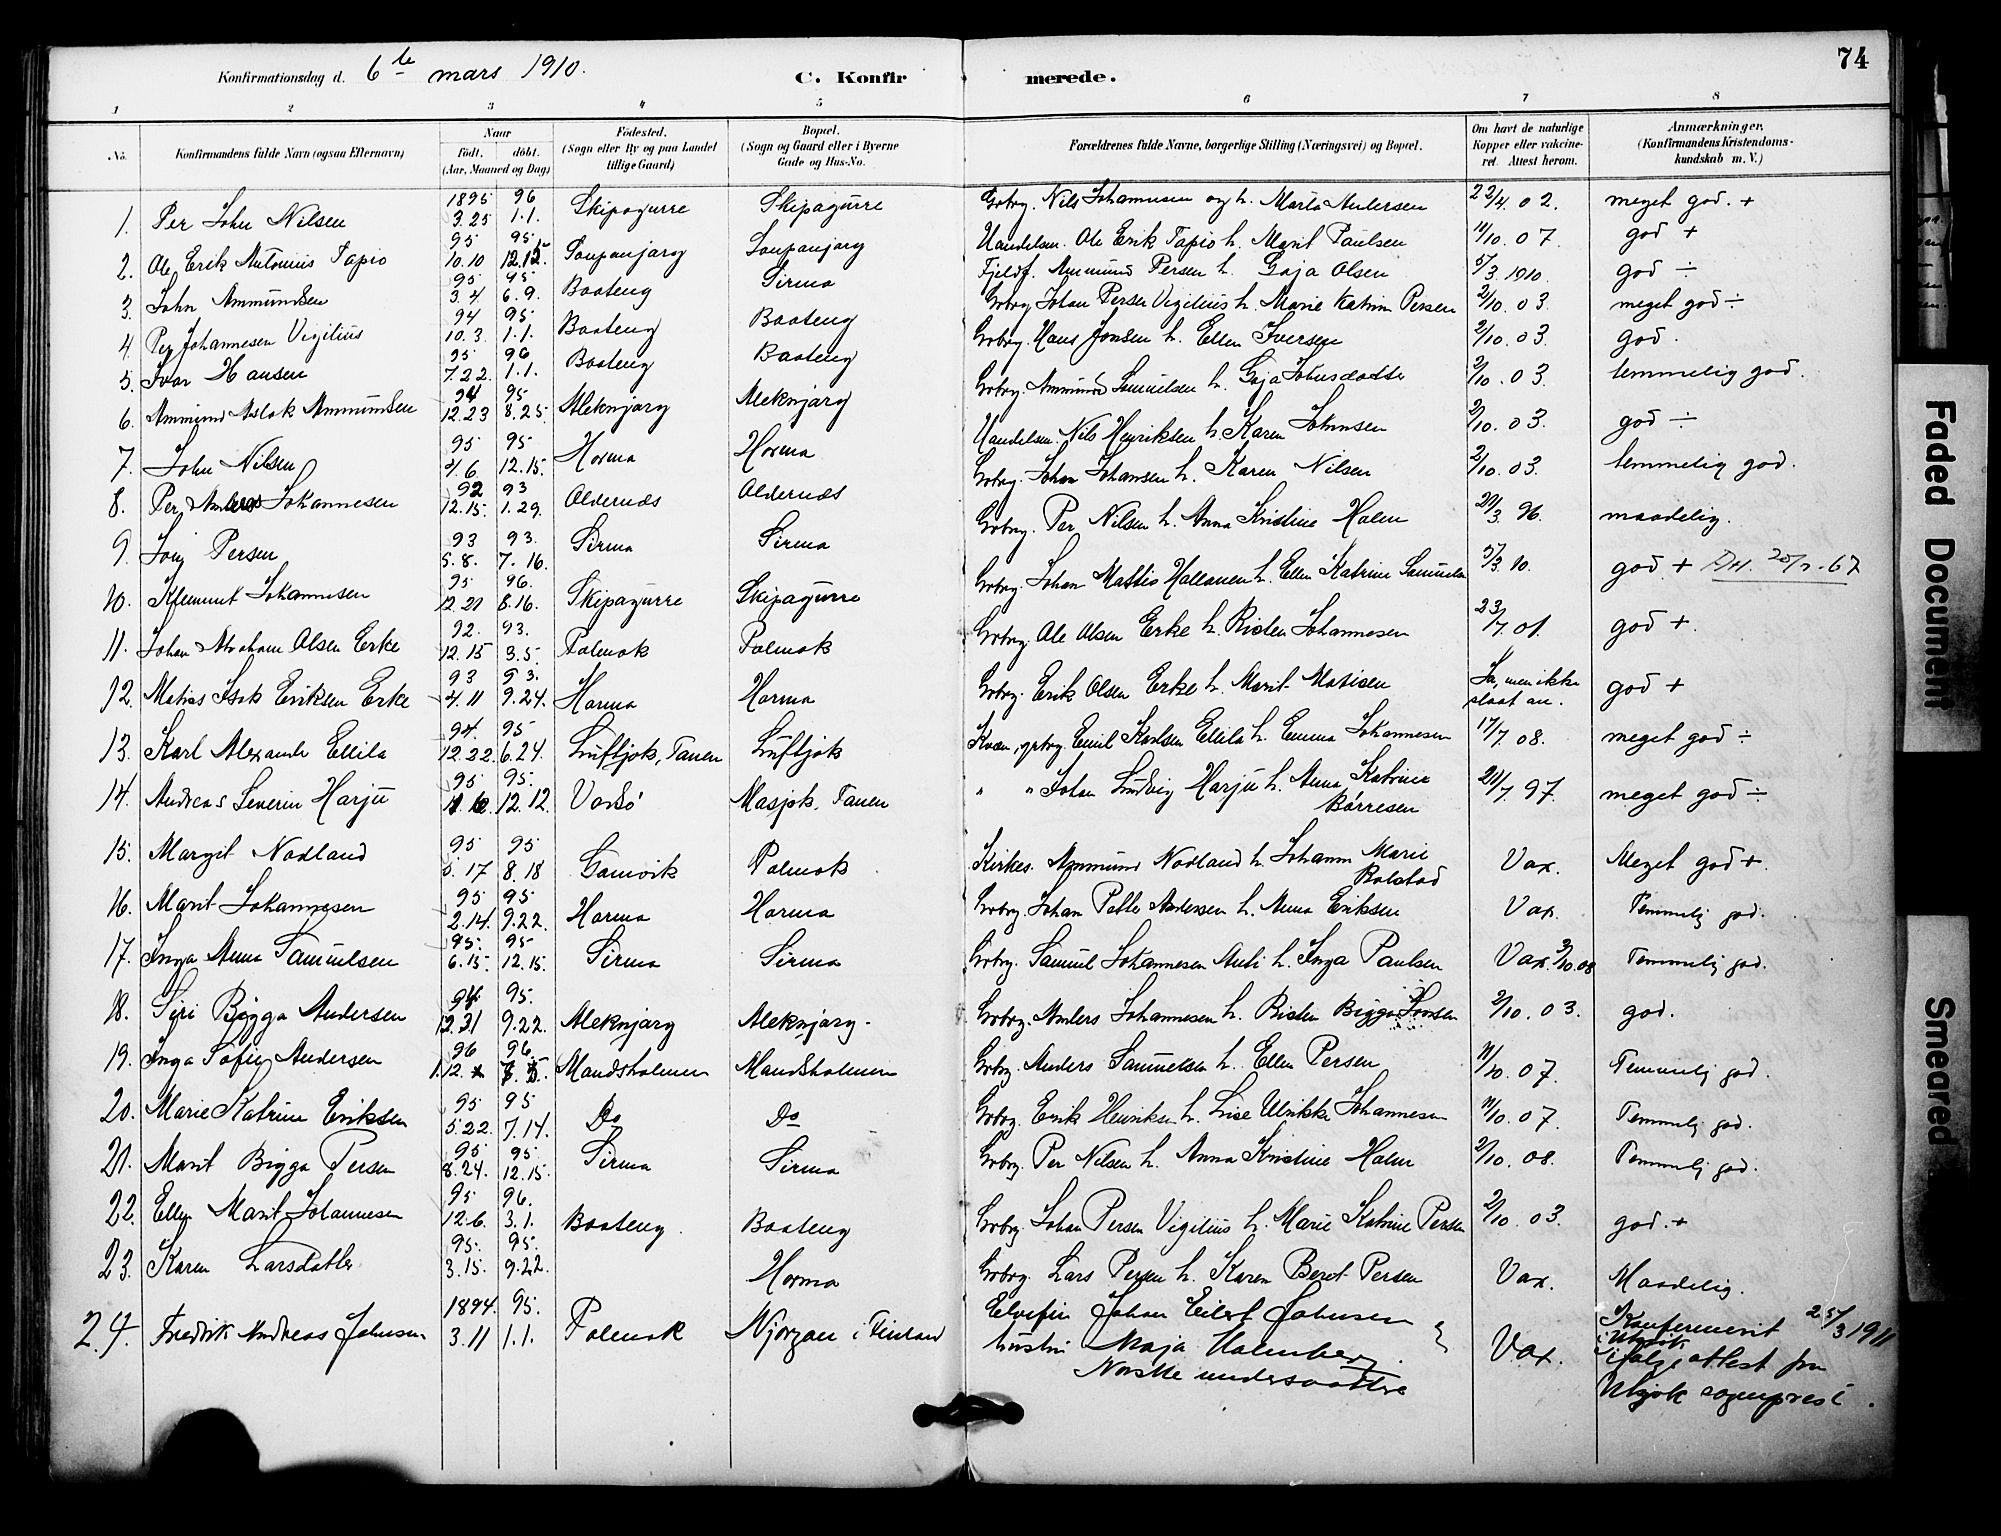 Konfirmationsdag d. 6te mars 1910. C. Konfirmerede. 74
1 2 3 4 5 6 7 8
No. Konfirmandens fulde Navn (ogsaa Efternavn) Naar født, døbt. (Aar, Maaned og Dag) Fødested. (Sogn eller By og paa Landet tillige Gaard) Bopæl. (Sogn og Gaard eller i Byerne Gade og Hus-No. Forældrenes fulde Navne, borgerlige Stilling (Næringsvei) og Bopæl. Om havt de naturlige Kopper eller vakcineret. Attest herom. Anmærkninger. (Konfirmandens Kristendomskundskab m. V.)
1. Per John Nilsen 1895 3.25 96 1.1. Skipagurre Skipagurre Gbrbrg. Nils Johannesen og h. Marta Andersen 22/4. 02. meget god. +
2. Ole Erik Antonius Tapio 95 10.10 95 12.15. Soupanjarg Soupanjarg Handelsm. Ole Erik Tapio h. Marit Paulsen 11/10. 07. god +
3. John Ammundsen 95 3.4 95 6.9. Baateng Sirma Fjeldf. Ammund Persen h. Gaja Olsen 5/3 1910. god ÷
4. Per Johannesen Vigilius 94 10.3. 95 1.1. Baateng Baateng Gbrbrg. Johan Persen Vigilius h. Marie Katrin Persen 2/10. 03. meget god ÷
5. Ivar Hansen 95 7.22. 96 1.1. Baateng Baateng Gbrbrg. Hans Jonsen h. Ellen Iversen 2/10. 03. god.
6. Ammund Aslak Ammundsen 94 12.23 95 8.25. Aleknjarg Aleknjarg Gbrbrg. Ammund Samuelsen h. Gaja Johnsdatter 2/10. 03. temmelig god.
7. John Nilsen 95 4.6. 95 12.15. Horma Horma Handelsm. Nils Henriksen h. Karen Johnsen 2/10. 03. god ÷
8. Per Anders Johannesen 92 12.15. 93 1.29. Aldernæs Aldernæs Gbrbrg. Johan Johansen h. Karen Nilsen 2/10. 03. temmelig god.
9. Persen 93 5.8. 93. 7.16. Sirma Sirma Gbrbrg. Per Nilsen h. Anna Kristine Halm 3. 96. maadelig.
10. Klemmet Johannesen 95 12.21 96. 8.16. Skipagurre Skipagurre Gbrbrg. Johan Mattis h. Ellen Katrine Samuelsen 5/3 10. god. +
11. Johan Abraham Olsen Erke 92. 12.15 93. 3.5. Polmak Polmak Gbrbrg. Ole Olsen Erke h. Risten Johannesen 23/7. 01. god +.
12. Matias Isak Eriksen Erke 93 4.11 93. 9.24. Horma Horma Gbrbrg. Erik Olsen Erke h. Marit Matisen Ja, men ikke slaat an. god +
13. Karl Alexander Ellila 94. 12.22. 95 6.24. Luftjok, Tanen Luftjok Kvæn, gbrbrg. Emil Karlsen Ellila h. Emma Johannesen 17/7. 08. meget god ÷
14. Andreas Severin Harju 95 95. 12.12. Vadsö Masjok, Tanen " " Johan Ludvig Harju h. Anna Katrine Börresen 21/7. 97. meget god ÷
15. Margit Nodland 95 5.17 95 8.18 Gamvik Polmak Kirkes. Ammund Nodland h. Johann Marie Rolstad Vax. Meget god +.
16. Marit Johannesen 95 2.14. 95 9.22. Horma Horma Gbrbrg. Johan Petter Andersen h. Anna Eriksen Vax. Temmelig god.
17. Inga Anna Samuelsen 95. 6.15. 95 12.15. Sirma Sirma Gbrbrg. Samuel Johannesen Anti h. Inga Paulsen Vax. 3/10.08 Temmelig god.
18. Siri Bigga Andersen 94 12.31 95. 9.22. Aleknjarg Aleknjarg. Gbrbrg. Anders Johannesen h. Risten Bigga Jonsen 2/10. 03. god.
19. Inga Sofie Andersen 96 1.12. 96. Mandsholmen Mandsholmen Gbrbrg. Anders Samuelsen h. Ellen Persen 11/10. 07. Temmelig god.
20. Marie Katrine Eriksen 95 5.22. 95 7.14. Do Do Gbrbrg. Erik Henriksen h. Lise Ulrikke Johannesen 11/10. 07. Temmelig god.
21. Marit Bigga Persen 95 8.24. 95 12.15. Sirma Sirma Gbrbrg. Per Nilsen h. Anna Kristine Halm 2/10. 08. Temmelig god.
22. Ellen Marit Johannesen 95 12.6. 96. 3.1. Baateng. Baateng Gbrbrg. Johan Persen Vigilius h. Marie Katrine Persen 2/10. 03. god. +
23. Karen Larsdatter 95. 3.15. 95. 9.22. Horma Gbrbrg. Lars Persen h. Karen Beret Persen Vax. Maadelig.
24. Fredrik Andreas Johnsen 1894. 3.11 95. 1.1. Polmak Njorgan i Finland Elvefin Johan Eilert Johnsen & hustru Maja Halmberg. Norske undersaatter Vax. Konfirmerit 25/3 1911 i Utsjok ifølge attest fra Utsjok sogneprest.
Faded Document
Smeared